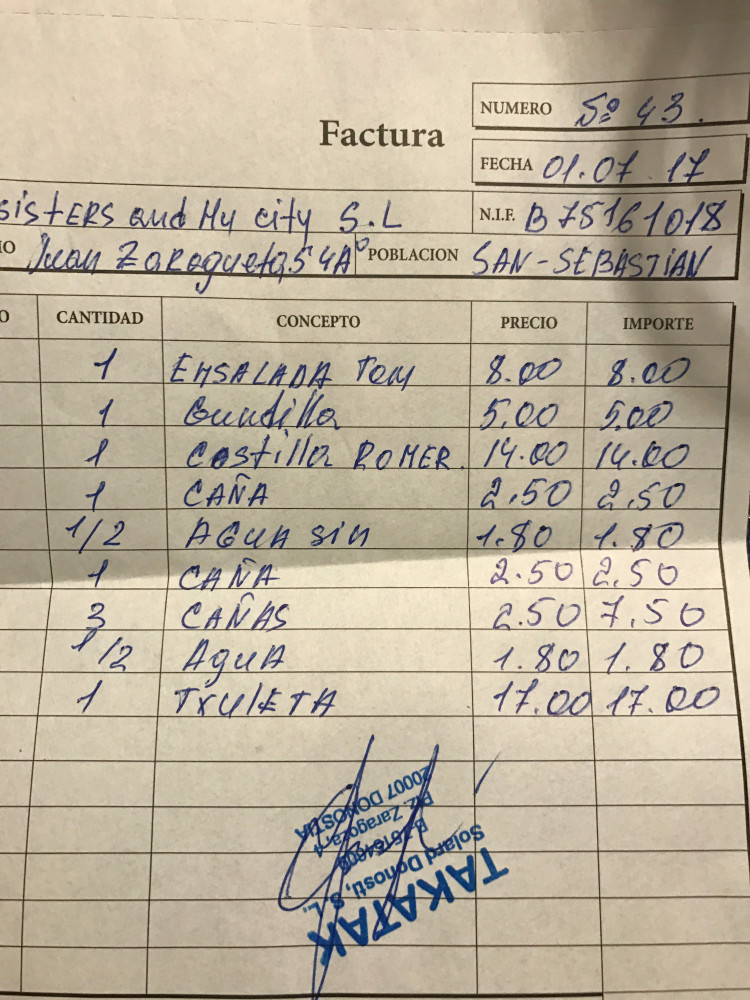 Factura
NUMERO 5º 43.
FECHA 01.07.17
sisters and My city S.L N.I.F. B75161018
IO Juan Zaragueta, 5 4Aº POBLACION SAN-SEBASTIAN
O CANTIDAD CONCEPTO PRECIO IMPORTE
1 ENSALADA Tom 8.00 8.00
1 5,00 5.00
1 Costilla ROMER. 14.00 14.00
1 CAÑA 2.50 2,50
1/2 AGUA sin 1.80 1.80
1 CAÑA 2.50 2,50
3 CAÑAS 2.50 7,50
1/2 AguA 1.80 1.80
1 TXULETA 17.00 17.00
TAKATAK
Solard Donosti, S.L.
Plz. Zaragoza, 4
20007 DONOSTIA